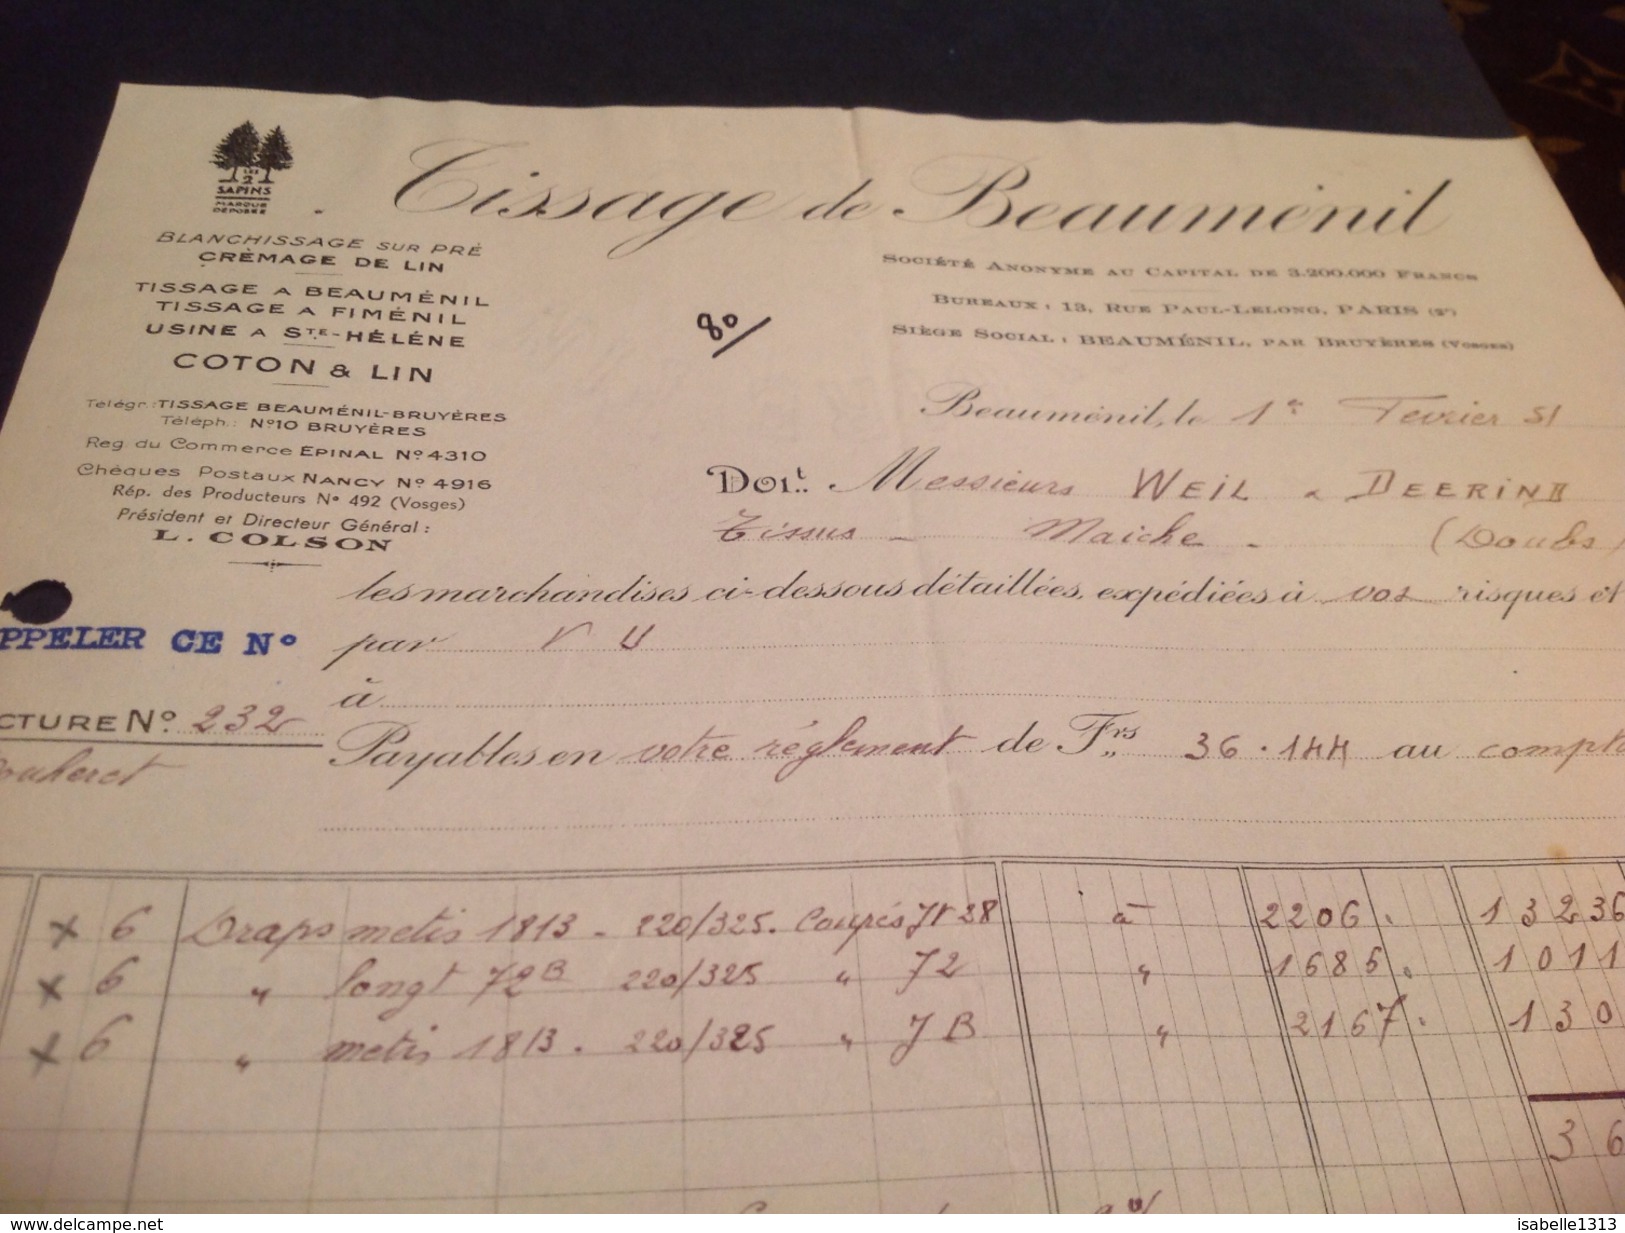 LES
2
SAPINS
MARQUE
DÉPOSÉE
Tissage de Beauménil
BLANCHISSAGE SUR PRÉ
CRÈMAGE DE LIN
TISSAGE A BEAUMÉNIL
TISSAGE A FIMÉNIL
USINE A STE-HÉLÉNE
COTON & LIN
Télégr.: TISSAGE BEAUMÉNIL-BRUYÈRES
Téléph.: Nº 10 BRUYÈRES
Reg du Commerce EPINAL Nº 4310
Chèques Postaux NANCY Nº 4916
Rép. des Producteurs Nº 492 (Vosges)
Président et Directeur Général :
L. COLSON
Société Anonyme au Capital de 3.200.000 Francs
Bureaux : 13, Rue Paul-Lelong, PARIS (2e)
Siège Social : BEAUMÉNIL, par Bruyères (Vosges)
80/
Beauménil, le 1er Fevrier 51
Doit Messieurs WEIL & DEERING
Tissus - Maiche - (Doubs)
les marchandises ci-dessous détaillées, expédiées à vos risques et
par V U
à
PPELER CE Nº
CTURE Nº 232
Payables en votre règlement de Frs 36.144 au compt
X 6 Draps metis 1813 - 220/325. Coupés Jr 28 à 2206. 13236
X 6 " longt 72B 220/325 " J2 " 1686. 1011
X 6 " metis 1813. 220/325 " JB " 2167. 130
36
www.delcampe.net
isabelle1313